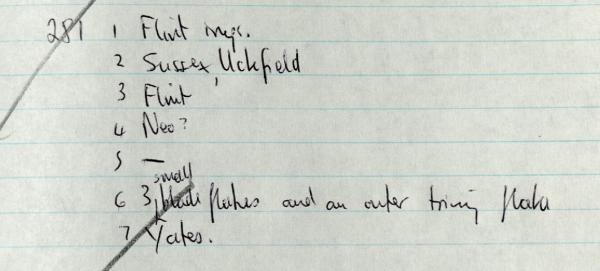 281 1 Flint imps.
2 Sussex, Uckfield
3 Flint
4 Neo?
5 —
6 3 small blade flakes and an outer trim flake
7 Yates.